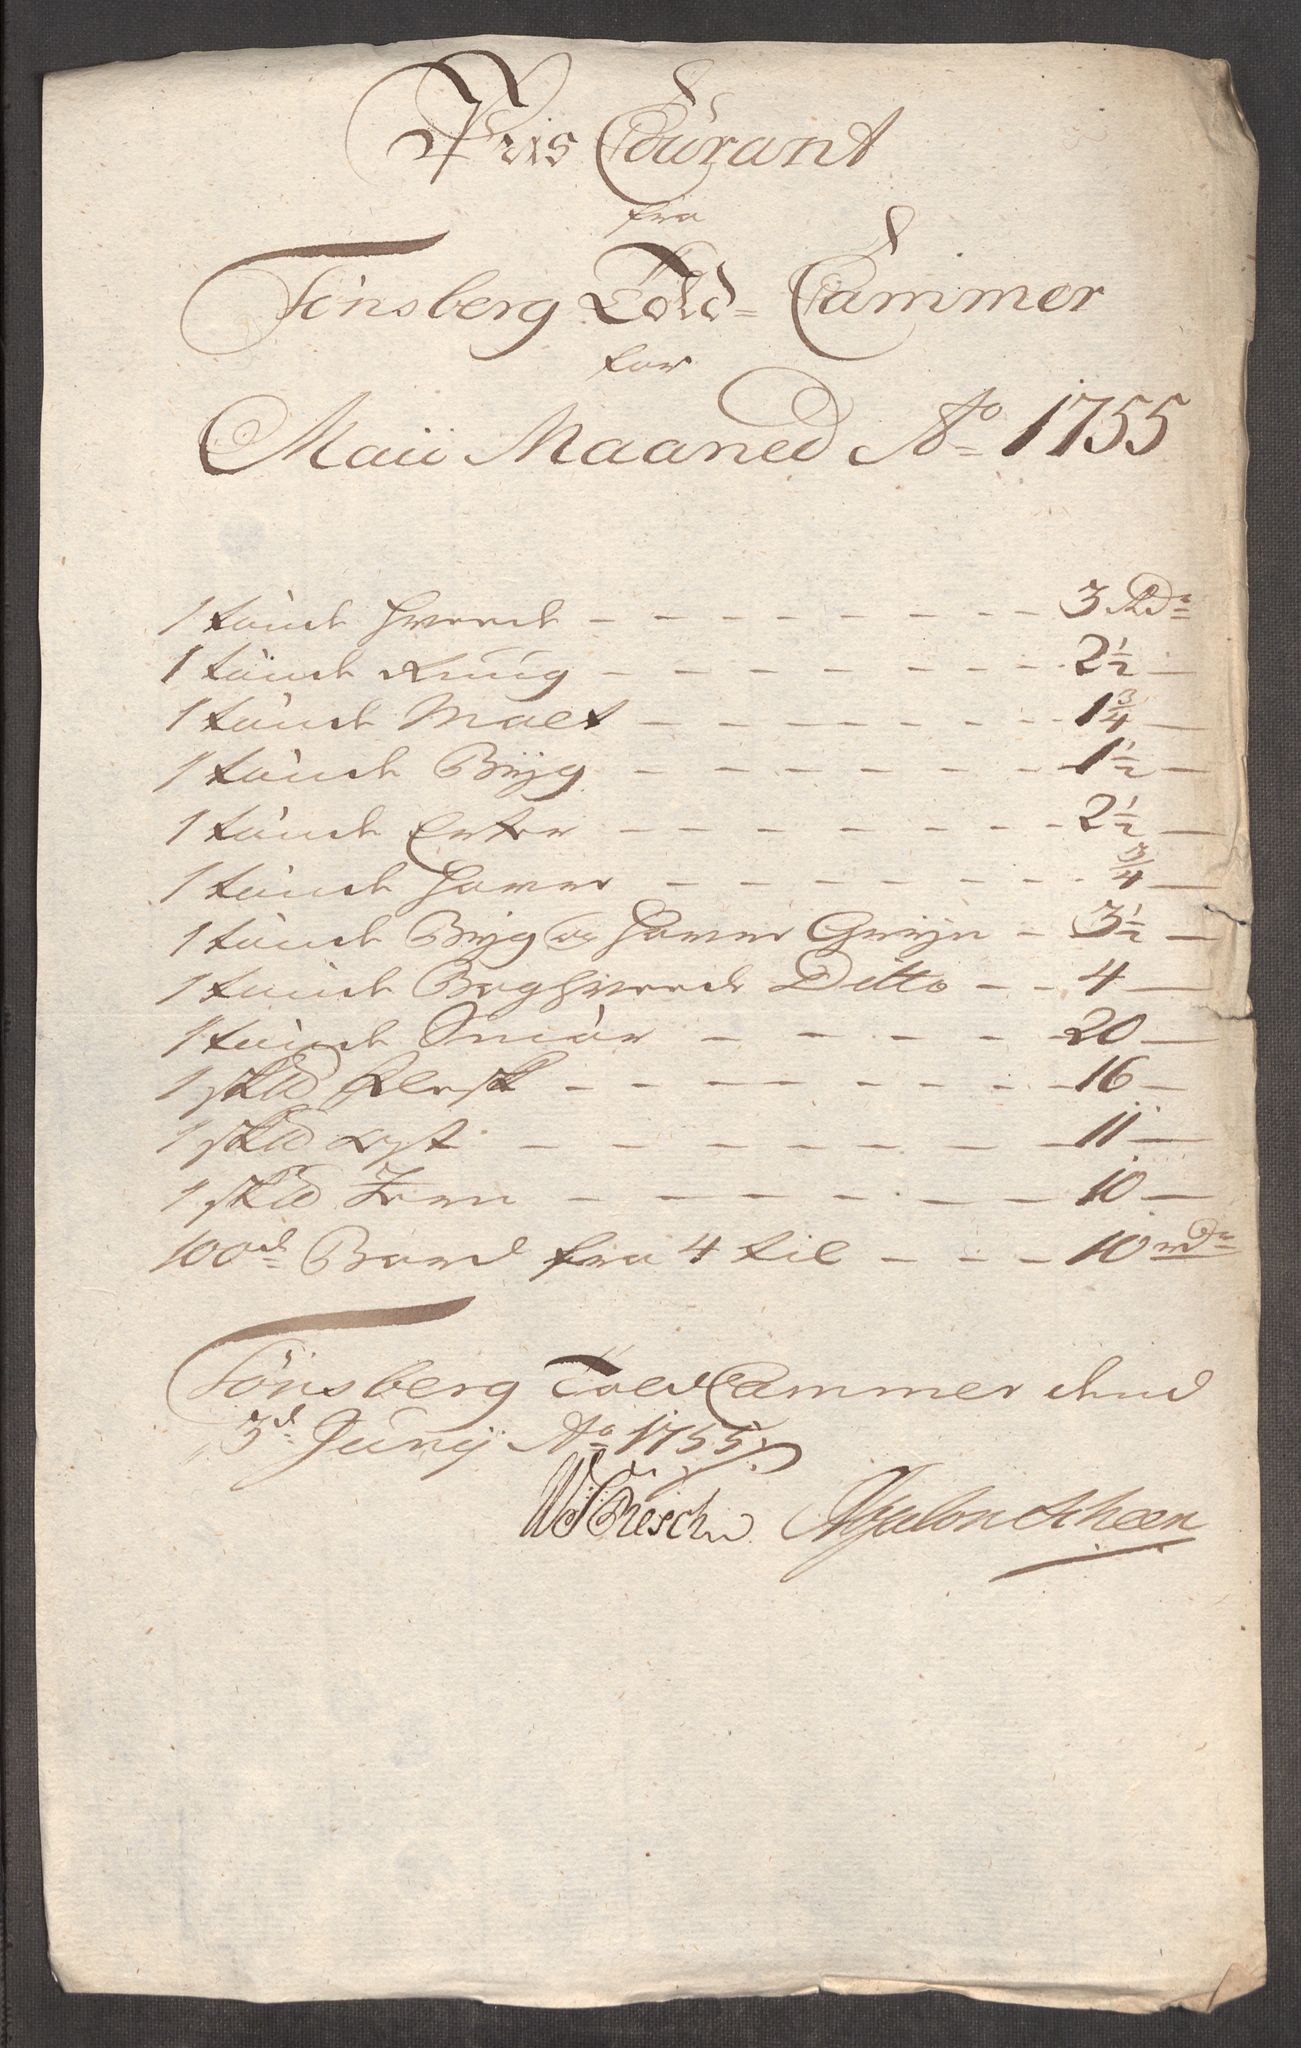 Pris Courant
fra
Tönsberg Told= Cammer
for
Maii Maaned Ao 1755
1 tönde Hvede - - - - - - - - - 3 Rdr
1 tönde Rug - - - - - - - - 2½ —
1 tönde Malt - - - - - - - - 1¾ —
1 tönde Bÿg - - - - - - - - 1½ —
1 tönde Erter - - - - - - - - 2½ —
1 tönde Haver - - - - - - - - ¾ —
1 tönde Bÿg og Haver Grÿn - 3½ —
1 tönde Boghvede Ditto - - 4 —
1 tönde Smör - - - - - 20 —
1 sk℔d Flesk - - - - - - - - 16 —
1 sk℔d Ost - - - - - - - - 11 —
1 sk℔d Jern - - - - - - - 10 —
100de Bord fra 4 til - - - 10 rdr
Tönsberg Told Cammer dend
3d Junÿ Ao 1755